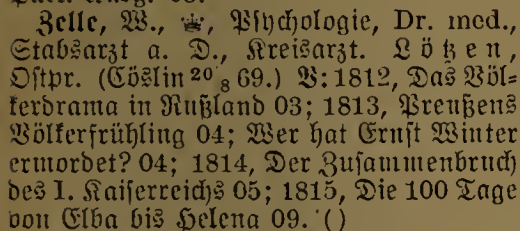 Zelle, W., Psychologie, Dr. med.,
Stabsarzt a. D., Kreisarzt. Lötzen,
Ostpr. (Cöslin 20/8 69.) V: 1812, Das Völ=
kerdrama in Rußland 03; 1813, Preußens
Völkerfrühling 04; Wer hat Ernst Winter
ermordet? 04; 1814, Der Zusammenbruch
des I. Kaiserreichs 05; 1815, Die 100 Tage
von Elba bis Helena 09. ()